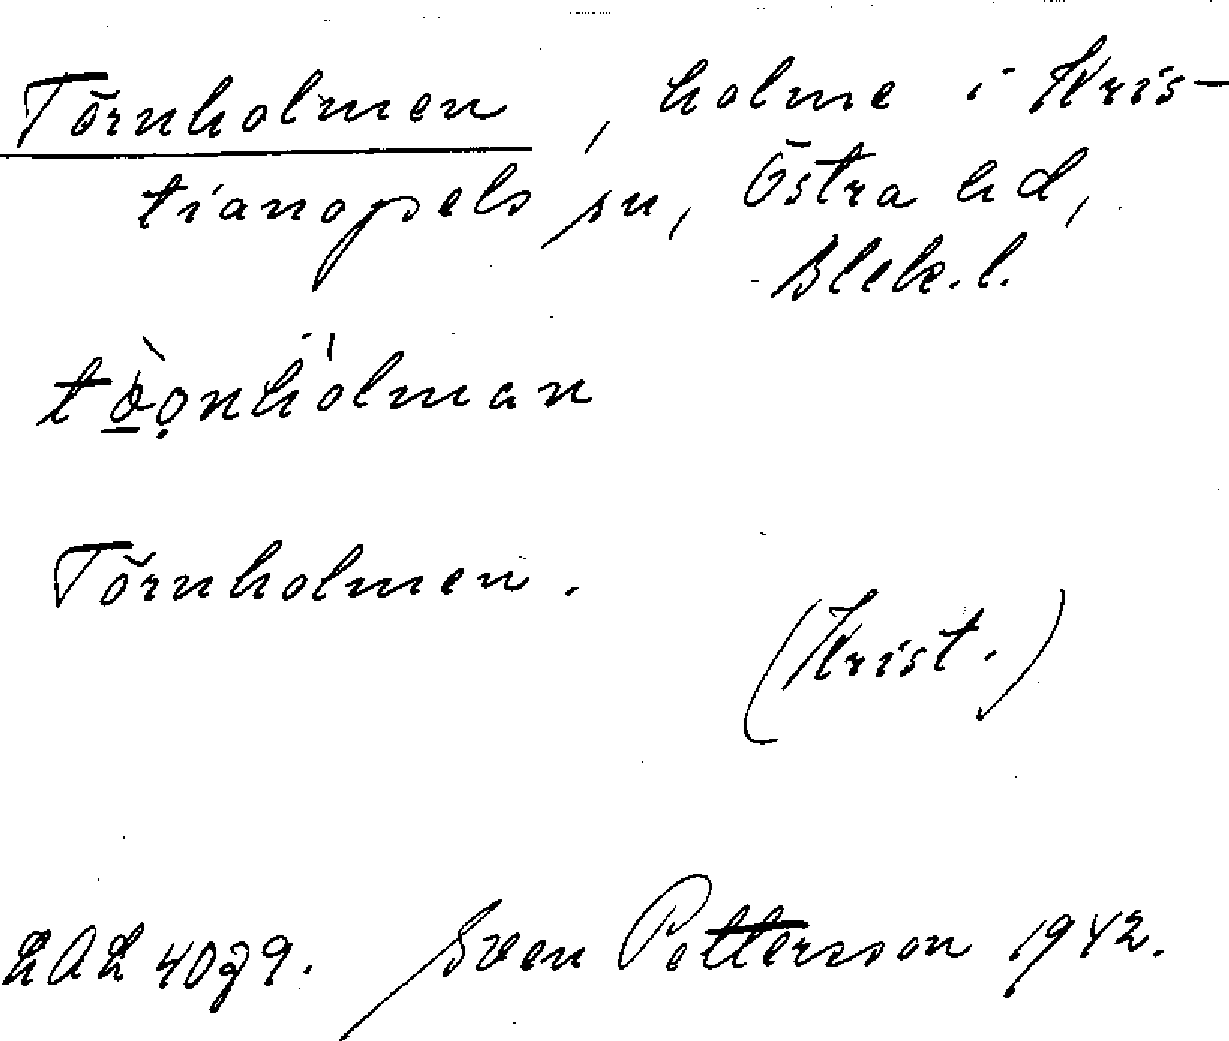 Törnholmen, holme i Kris-
tianopels sn, Östra hd,
Blek.l.
Törnholmen.
(Krist.)
Sven Pettersson 1942.